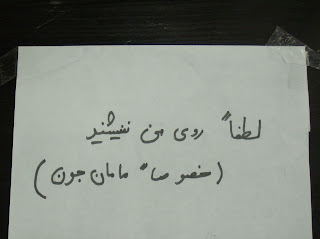 لطفاً روی من ننشینید
(خصوصاً مامان جون)